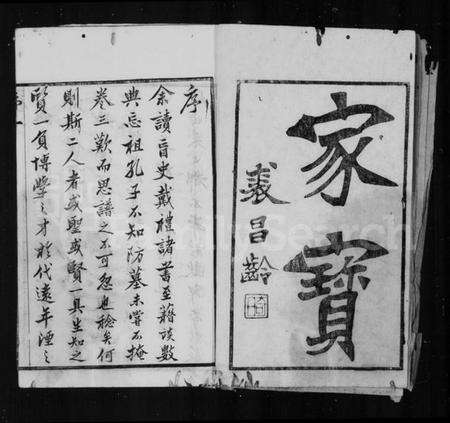 家寶
裘昌齡
序
余讀盲史戴禮諸書至籍談數
典忘祖孔子不知防墓未嘗不掩
卷三歎而思譜之不可忽也稔矣何
則斯二人者或聖或賢一具生知之
賢一負博學之才於代遠年湮之
FamilySearch